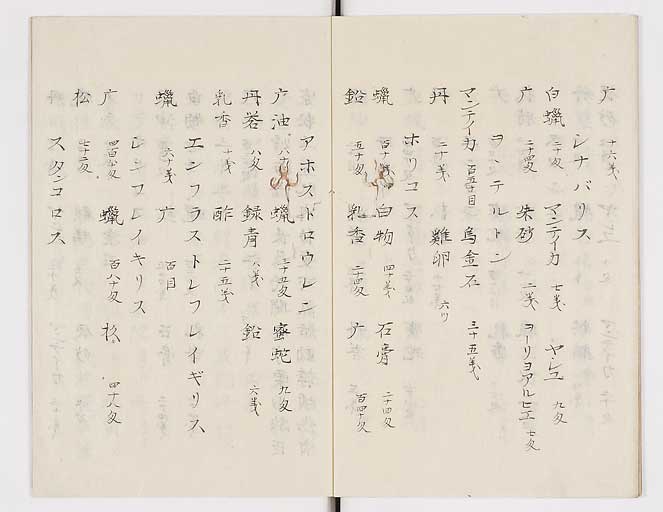 广 十六戔
シナバリス
白蠟 二十匁 マンテイカ 七戔 ヤシユ 九匁
广 二十四匁 朱砂 二戔 ヨーリヨアルヒエ 七匁
ヨトテルトン
マンテイカ 百五十目 烏金石 三十五戔
丹 二十戔 雞卵 六ツ
ホリコス
蠟 百十戔 白物 四十戔 石膏 二十四匁
鉛 五十匁 乳香 二十四匁 广 百四十匁
アホストロウレン
广油 蠟 二十五匁 蜜蛇 九匁
丹荖 八匁 緑青 八戔 鉛 六戔
乳香 十戔 酢 二十五戔
エンフラストレフレイギリス
蠟 六十戔 广 百目
レンフレイキリス
广 蠟 百八十匁 松 四十八匁
松 七十二匁
スタンコロス